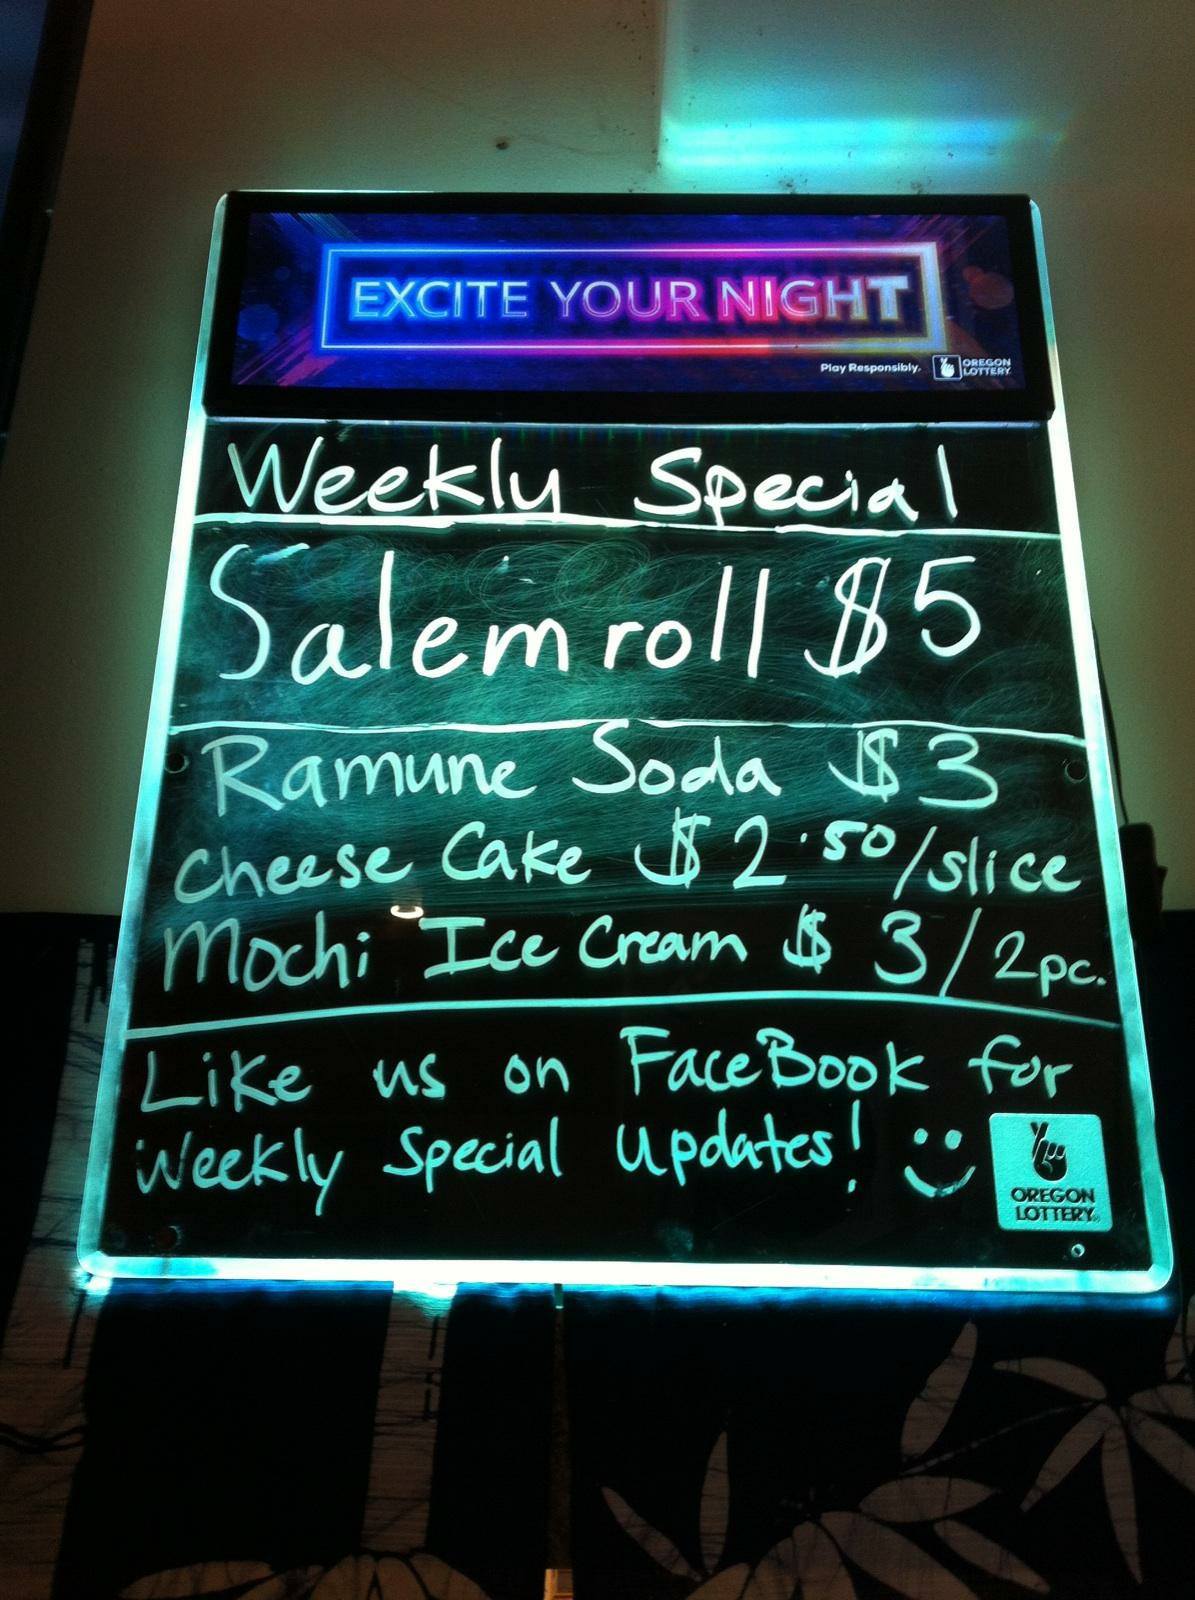 EXCITE YOUR NIGHT
Play Responsibly.
OREGON
LOTTERY
Weekly Special
Salem roll $5
Ramune Soda $3
Cheese Cake $2.50/slice
Mochi Ice Cream $3/2pc.
Like us on FaceBook for
Weekly Special Updates!
OREGON
LOTTERY